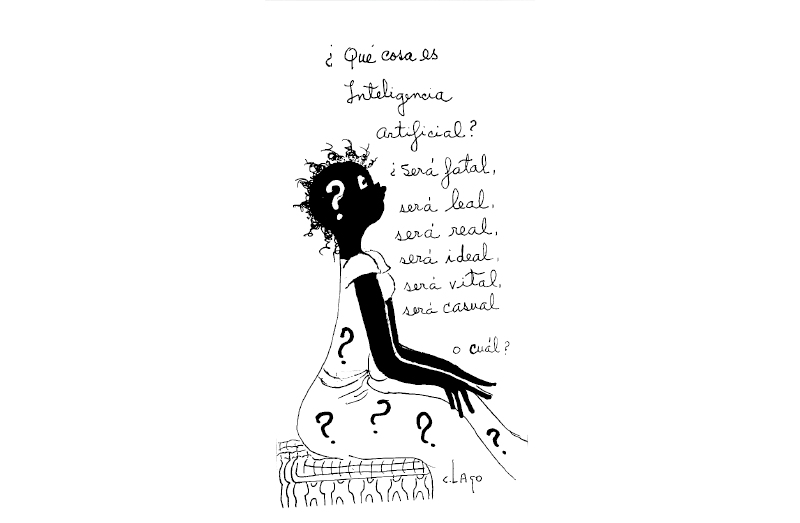 ¿ Qué cosa es
Inteligencia
artificial?
¿ Será fatal,
será leal,
será real,
será ideal,
será vital,
será casual
o cuál?
?
?
?
?
?
?
C. LAgo